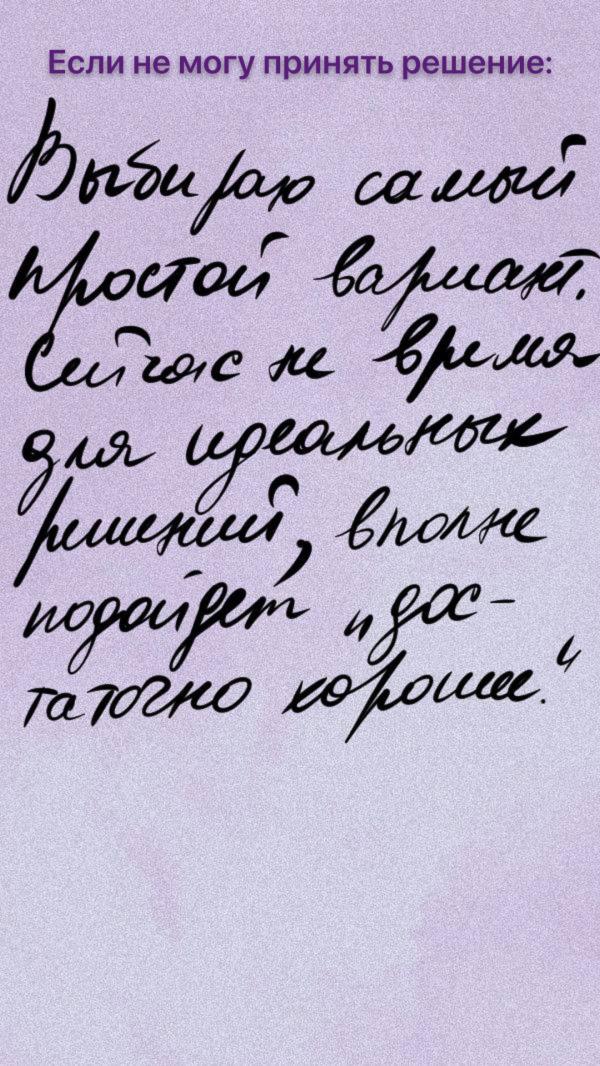 Если не могу принять решение:
Выбираю самый
простой вариант.
Сейчас не время
для идеальных
решений, вполне
подойдет „дос-
таточно хорошее."